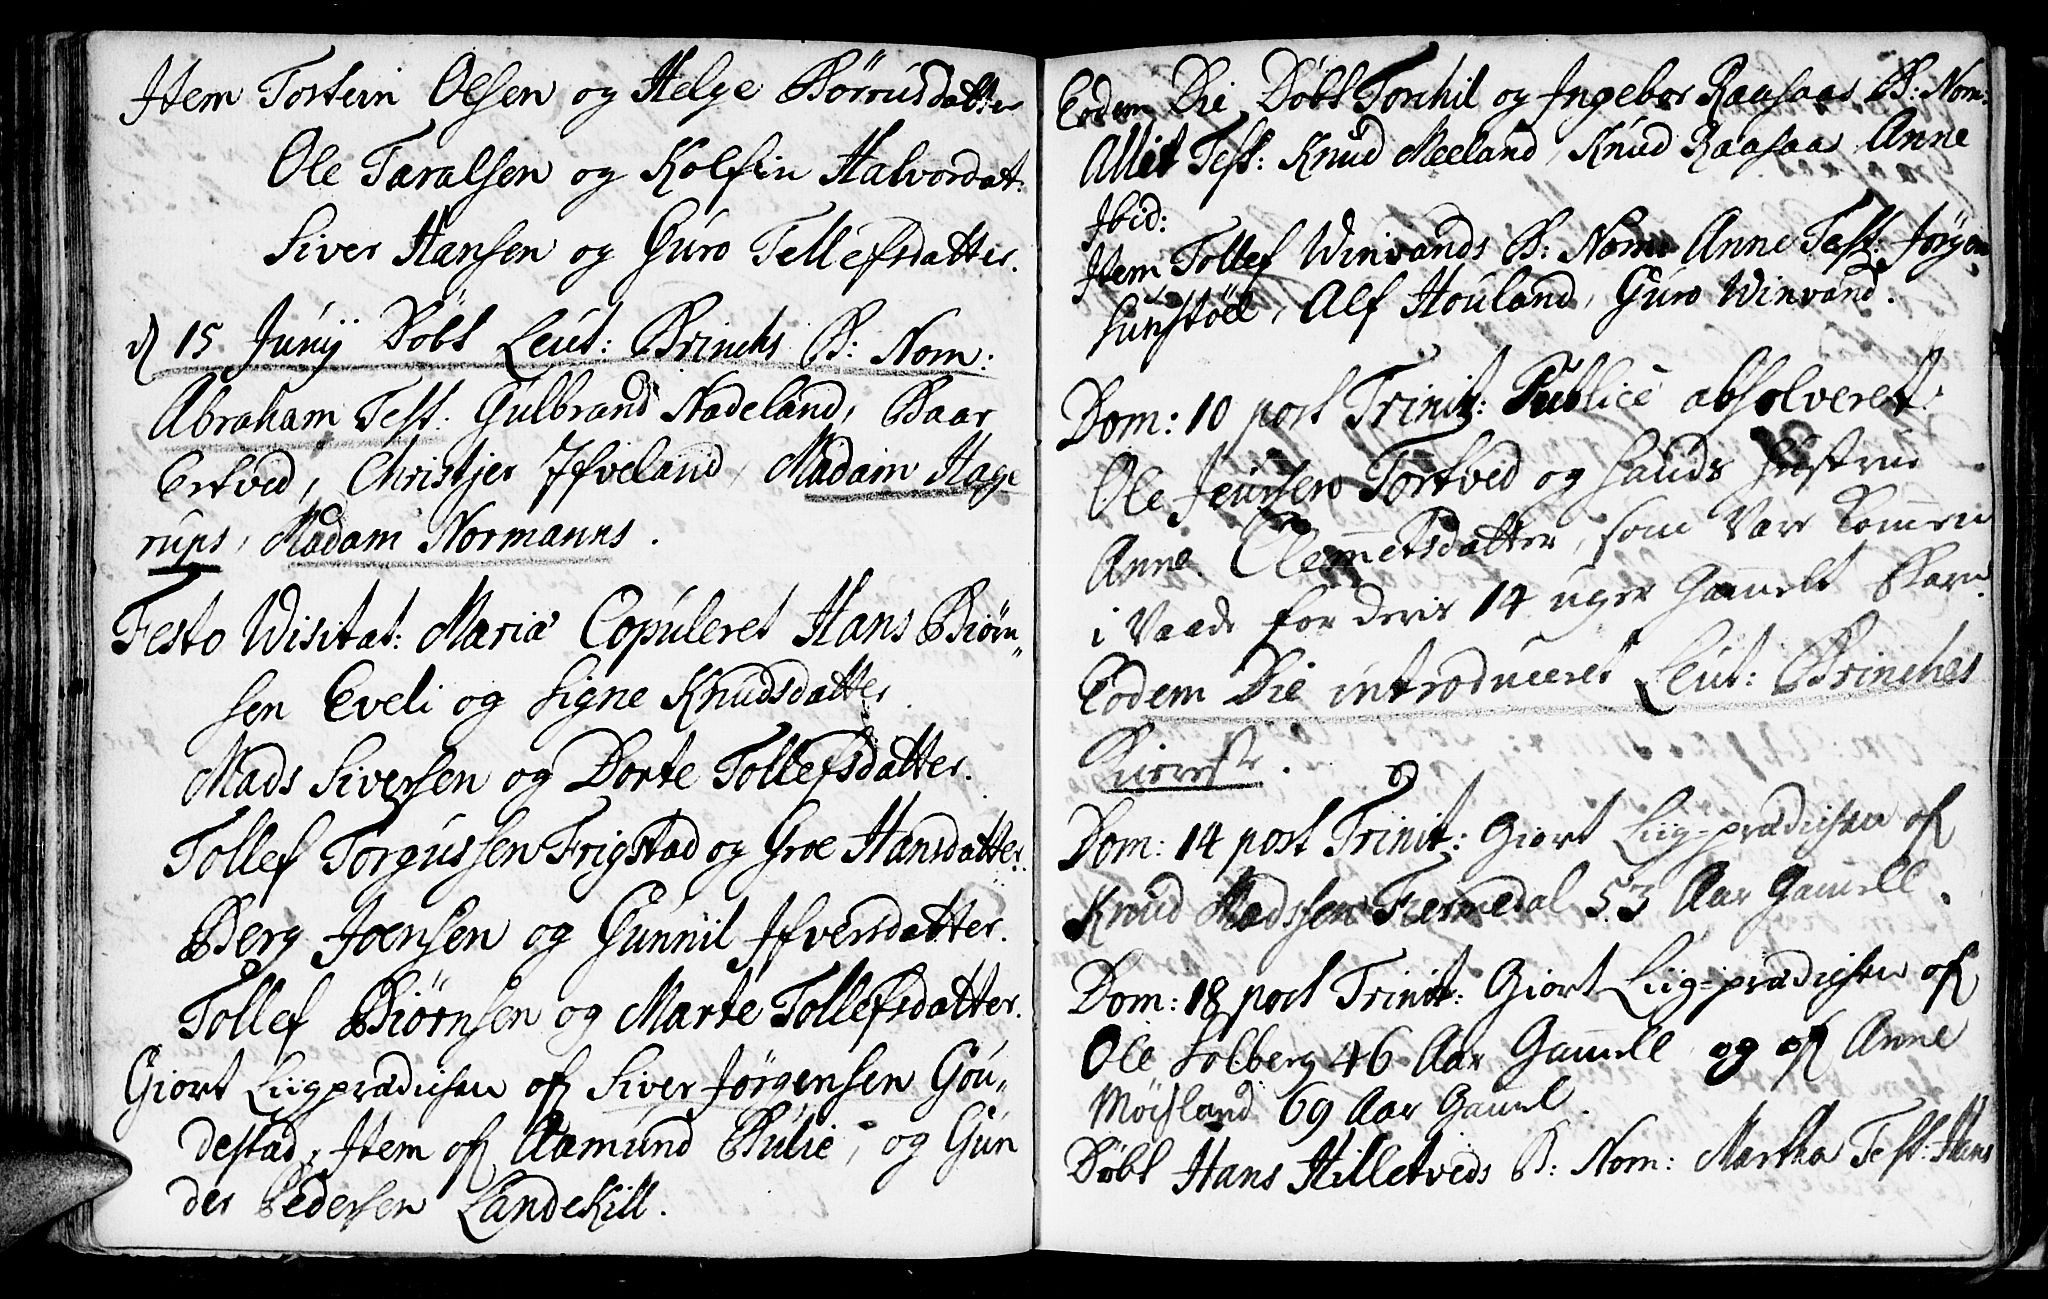 Item Tostein Olsen og Helge Börrusdatter
Ole Taralsen og Kolfin Halvordat:
Siver Hansen og Guro Tellefsdatter.
d 15 Junij Döbt Leut: Brinchs B: Nom:
Abraham Test: Gulbrand Nadeland, Baar
Ertved, Christjer Ifveland, Madam Hage
rups, Madam Normanns.
Festo Wisitat: Mariæ Copuleret Hans Biörn„
sen Eveli og Signe Knudsdatter.
Mads Siversen og Dorte Tollefsdatter.
Tollef Torgussen Frigstad og Groe Hansdatter.
Berg Joensen og Gunnil Ifversdatter.
Tollef Biörnsen og Marte Tollefsdatter.
Giort Liigprædicken of Siver Jörgensen Gou„
destad, Item of Aamund Bulie, og Gun
der Pedersen Landekill.
Eodem Die Döbt Torchil og Ingebor Raasaas B: Nom:
Allet Test: Knud Meeland, Knud Raasaas Anne
Ibid:
Item Tollef Winvands B: Nom: Anne Test: Jörgen
Sunstöel, Alf Houland, Guro Winvand.
Dom: 10 post Trinit: Publicè absolveret
Ole Jenssen Tortved og hands Hustrue
Anne Clemetsdatter, som Vare komen
i Vaade for deris 14 uger Gamelt Barn.
Eodem Die introduceret Leut: Brinches
Kiereste.
Dom: 14 post Trinit: Giort Liig-prædicken of
Knud Madssen Fermedal 53 Aar Gamell.
Dom: 18 post Trinit: Giort Liig-prædicken of
Ole Solberg 46 Aar Gamell og of Anne
Möisland 69 Aar Gamel.
Döbt Hans Hilletveds B: Nom: Martha Test: Hans